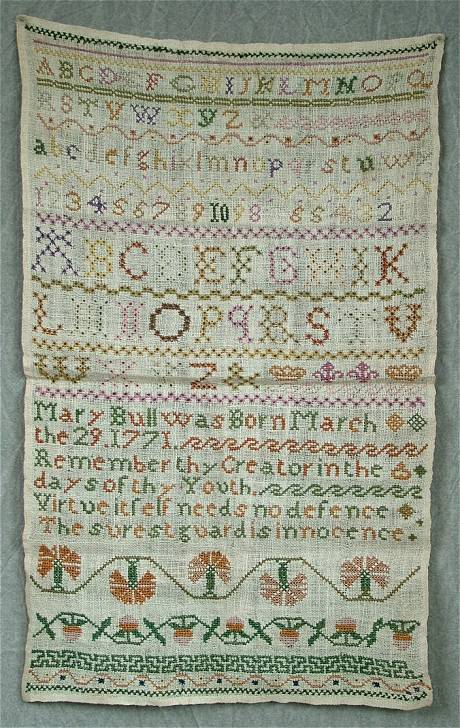 A B C D E F G H I J K L M N O P Q
R S T V W X Y Z &
a b c d e f g h i k l m n o p q r s t u w y
1 2 3 4 5 6 7 8 9 10 9 8 6 5 4 3 2
A B C D E F G H I K
L M N O P Q R S T V
W X Y Z &
Mary Bull was Born March
the 29. 1771.
Remember thy Creator in the
days of thy Youth.
Virtue itſelf needs no defence
The surest guard is innocence